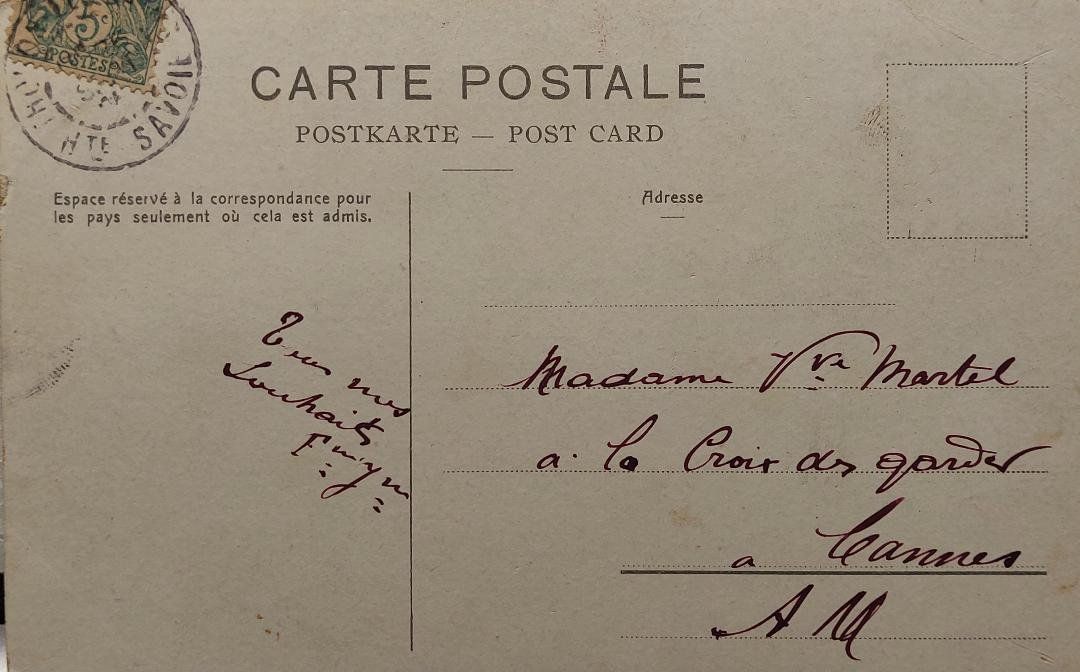 5c
POSTES
HTE SAVOIE
CARTE POSTALE
POSTKARTE — POST CARD
Espace réservé à la correspondance pour
les pays seulement où cela est admis.
Adresse
Tous mes
Souhaits
Madame Vve Martel
a la Croix des gardes
a Cannes
A M